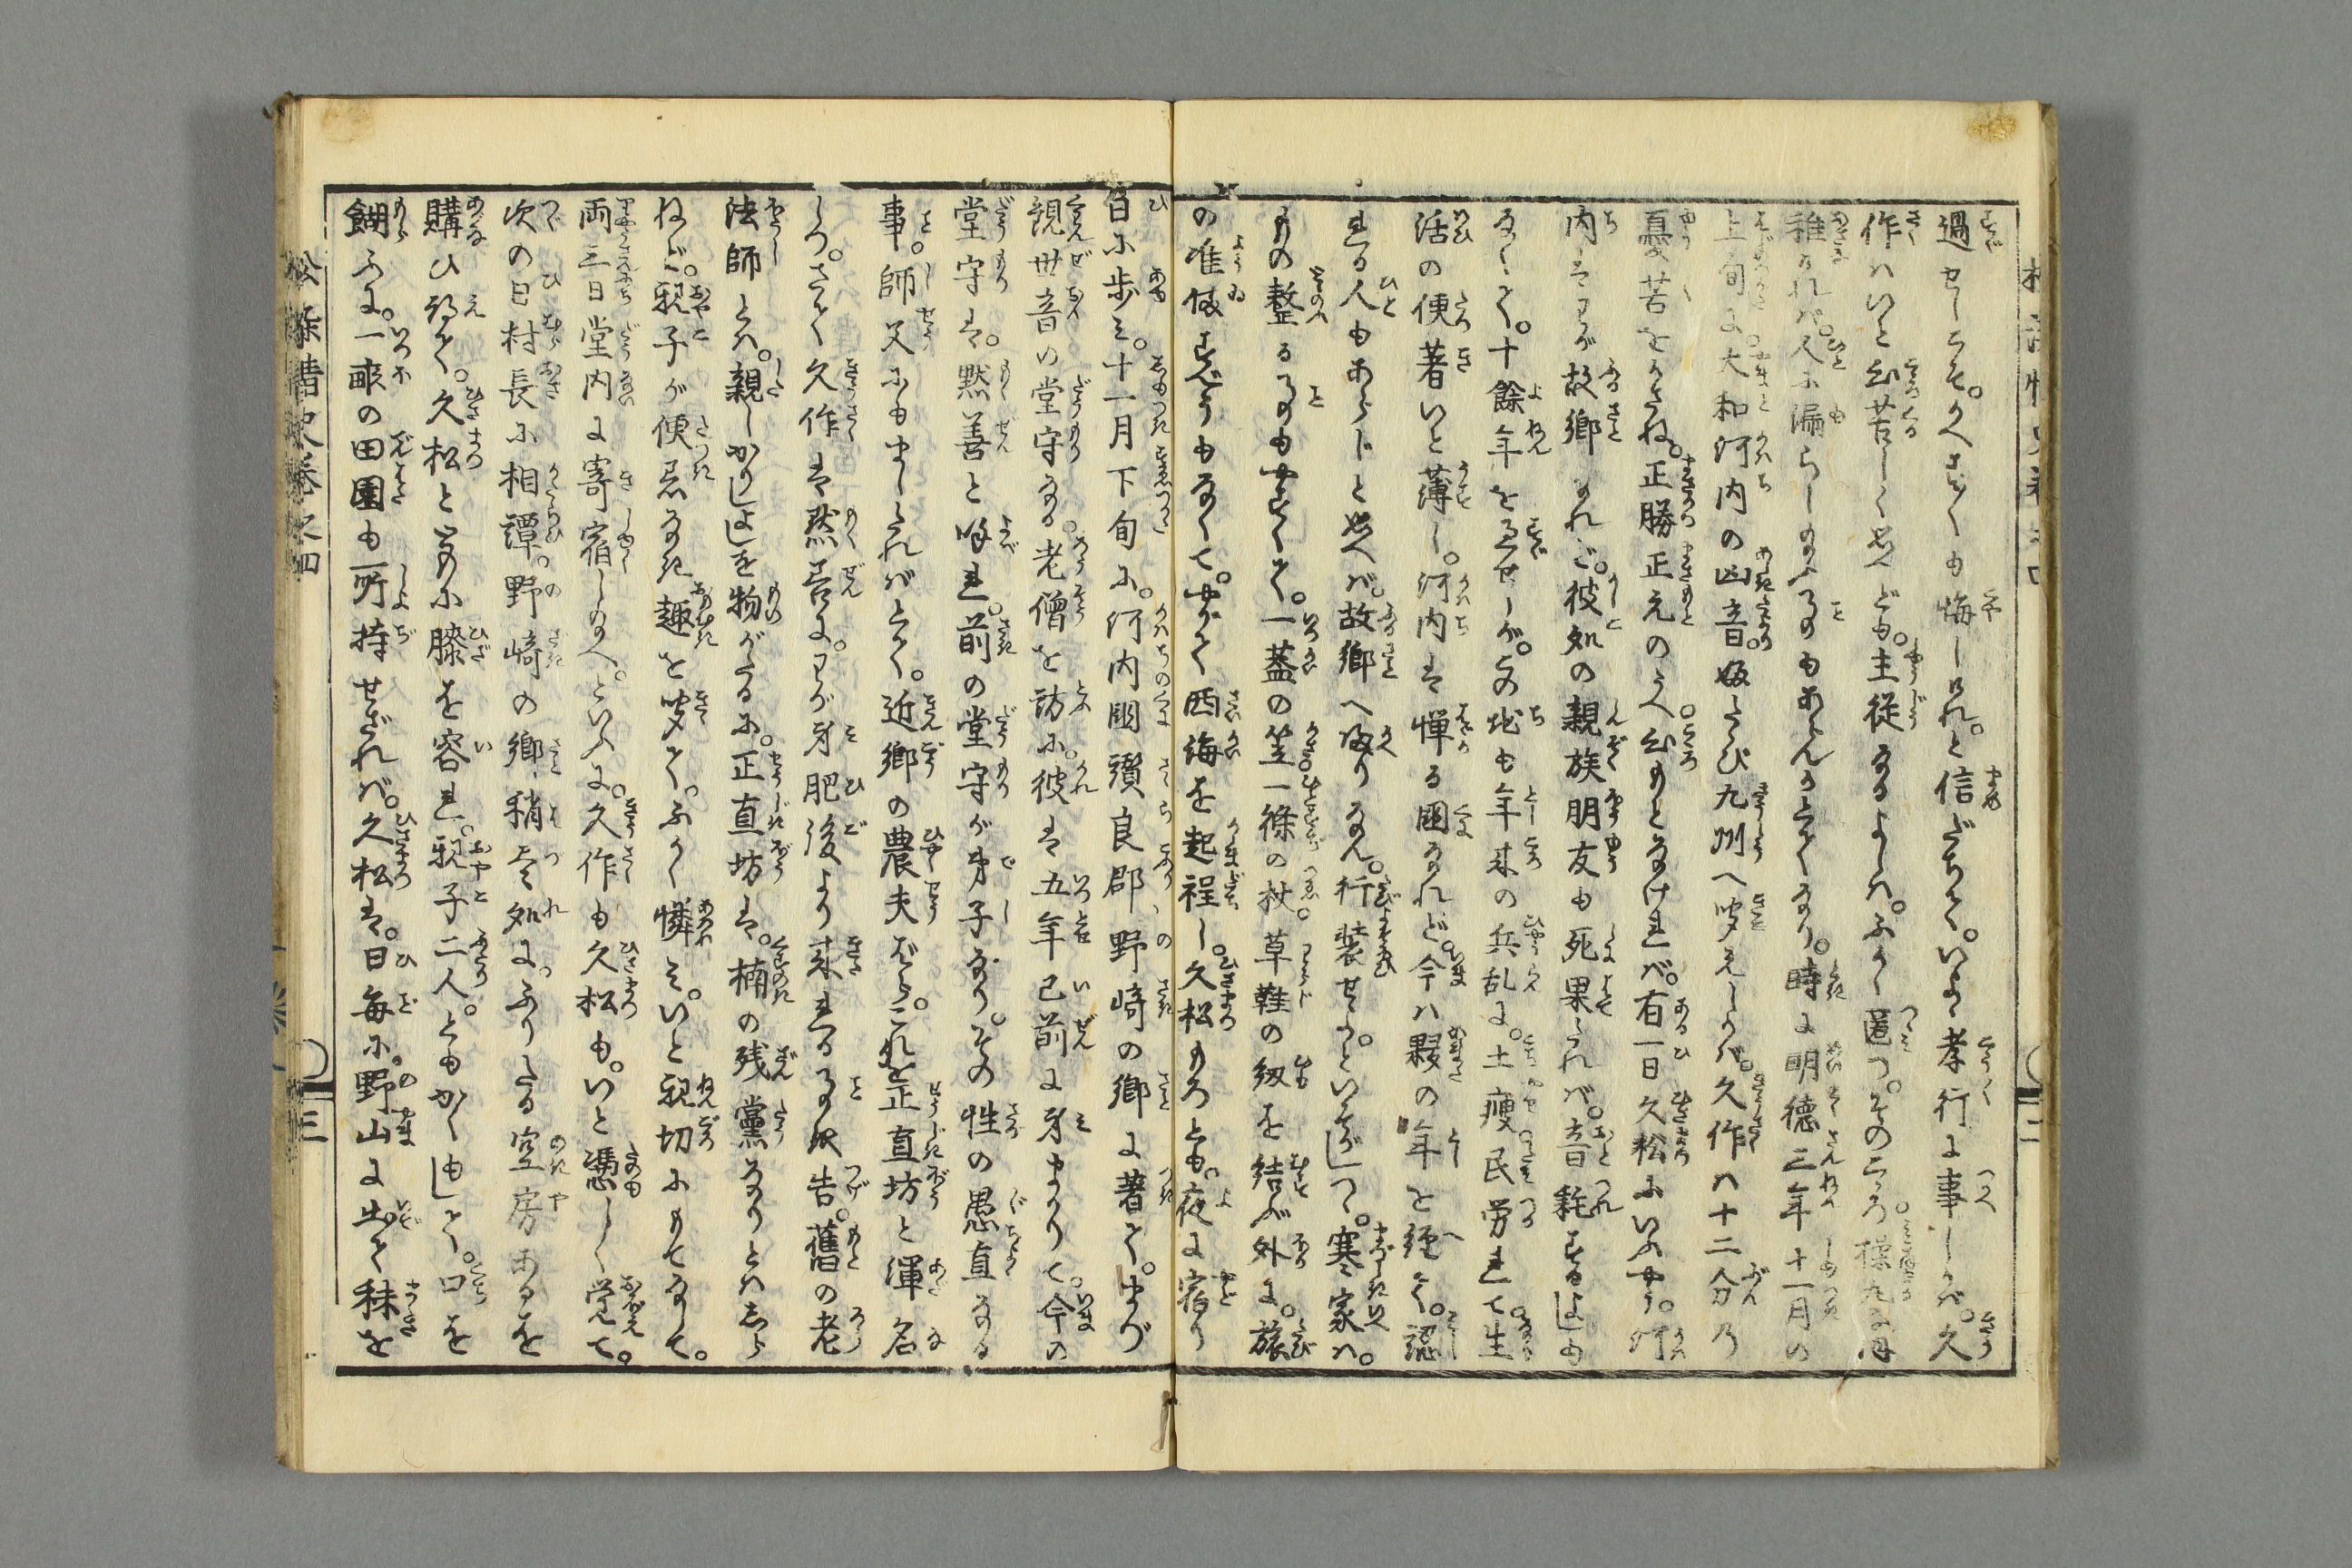 過せしこそ。かへす〴〵も悔しけれ。と信だちて。いよゝ孝行に事しかば。久
作はいと心苦しく思へども。主従なるよしは。ふかく匿つ。そのころ操丸なほ
稚ければ。人に漏らし給ふ事もあらんかとてなり。時に明徳三年十一月の
上旬に。大和河内の凶音。再たび九州へ聞えしかば。久作は十二分の
憂苦をかさね。正勝正元のうへ心もとなければ。有一日久松にいふやう。河
内はわが故郷なれど。彼処の親族朋友も死果たれば。音耗するよしも
なくて。十餘年を過せしが。この地も年来の兵乱に。土痩民労れて。生
活の便著いと薄し。河内は憚る國なれど。今は夥の年を經て。認
れる人もあらじと思へば。故郷へ帰りなん。行装せよ。といそがしつ。寒家は。
もの整る事も易くて。一蓋の笠。一條の杖。草鞋の紐を結ぶ外に。旅
の准備すべうもなくて。やがて西海を起程し。久松もろとも。夜に宿り
日に歩み。十一月下旬に。河内國讃良郡、野崎の郷に著て。まづ
観世音の堂守なる。老僧を訪に。彼は五年已前に身まかりて。今の
堂守は。黙善と呼れ。前の堂守が弟子なり。その性の愚直なる
事。師父にもましたればとて。近郷の農夫ばら。これを正直坊と渾名
しつ。さて久作は黙善に。わが身肥後より来れる事状告。舊の老
法師とは。親しかりしよしを物がたるに。正直坊は。楠の残黨なりとはしら
ねど。親子が便なき趣を聞て。ふかく憐み。いと親切にもてなして。
両三日堂内に寄宿し給へ。といふに。久作も久松も。いと憑しく覚て。
次の日村長に相譚。野崎の郷、稍尽処に。ふりたる空房あるを
購ひ得て。久松と共に膝を容れ。親子二人。ともかくもして。口を
餬ふに。一畝の田園も所持せざれば。久松は。日毎に。野山に出て秣を
松染情史巻之四
三